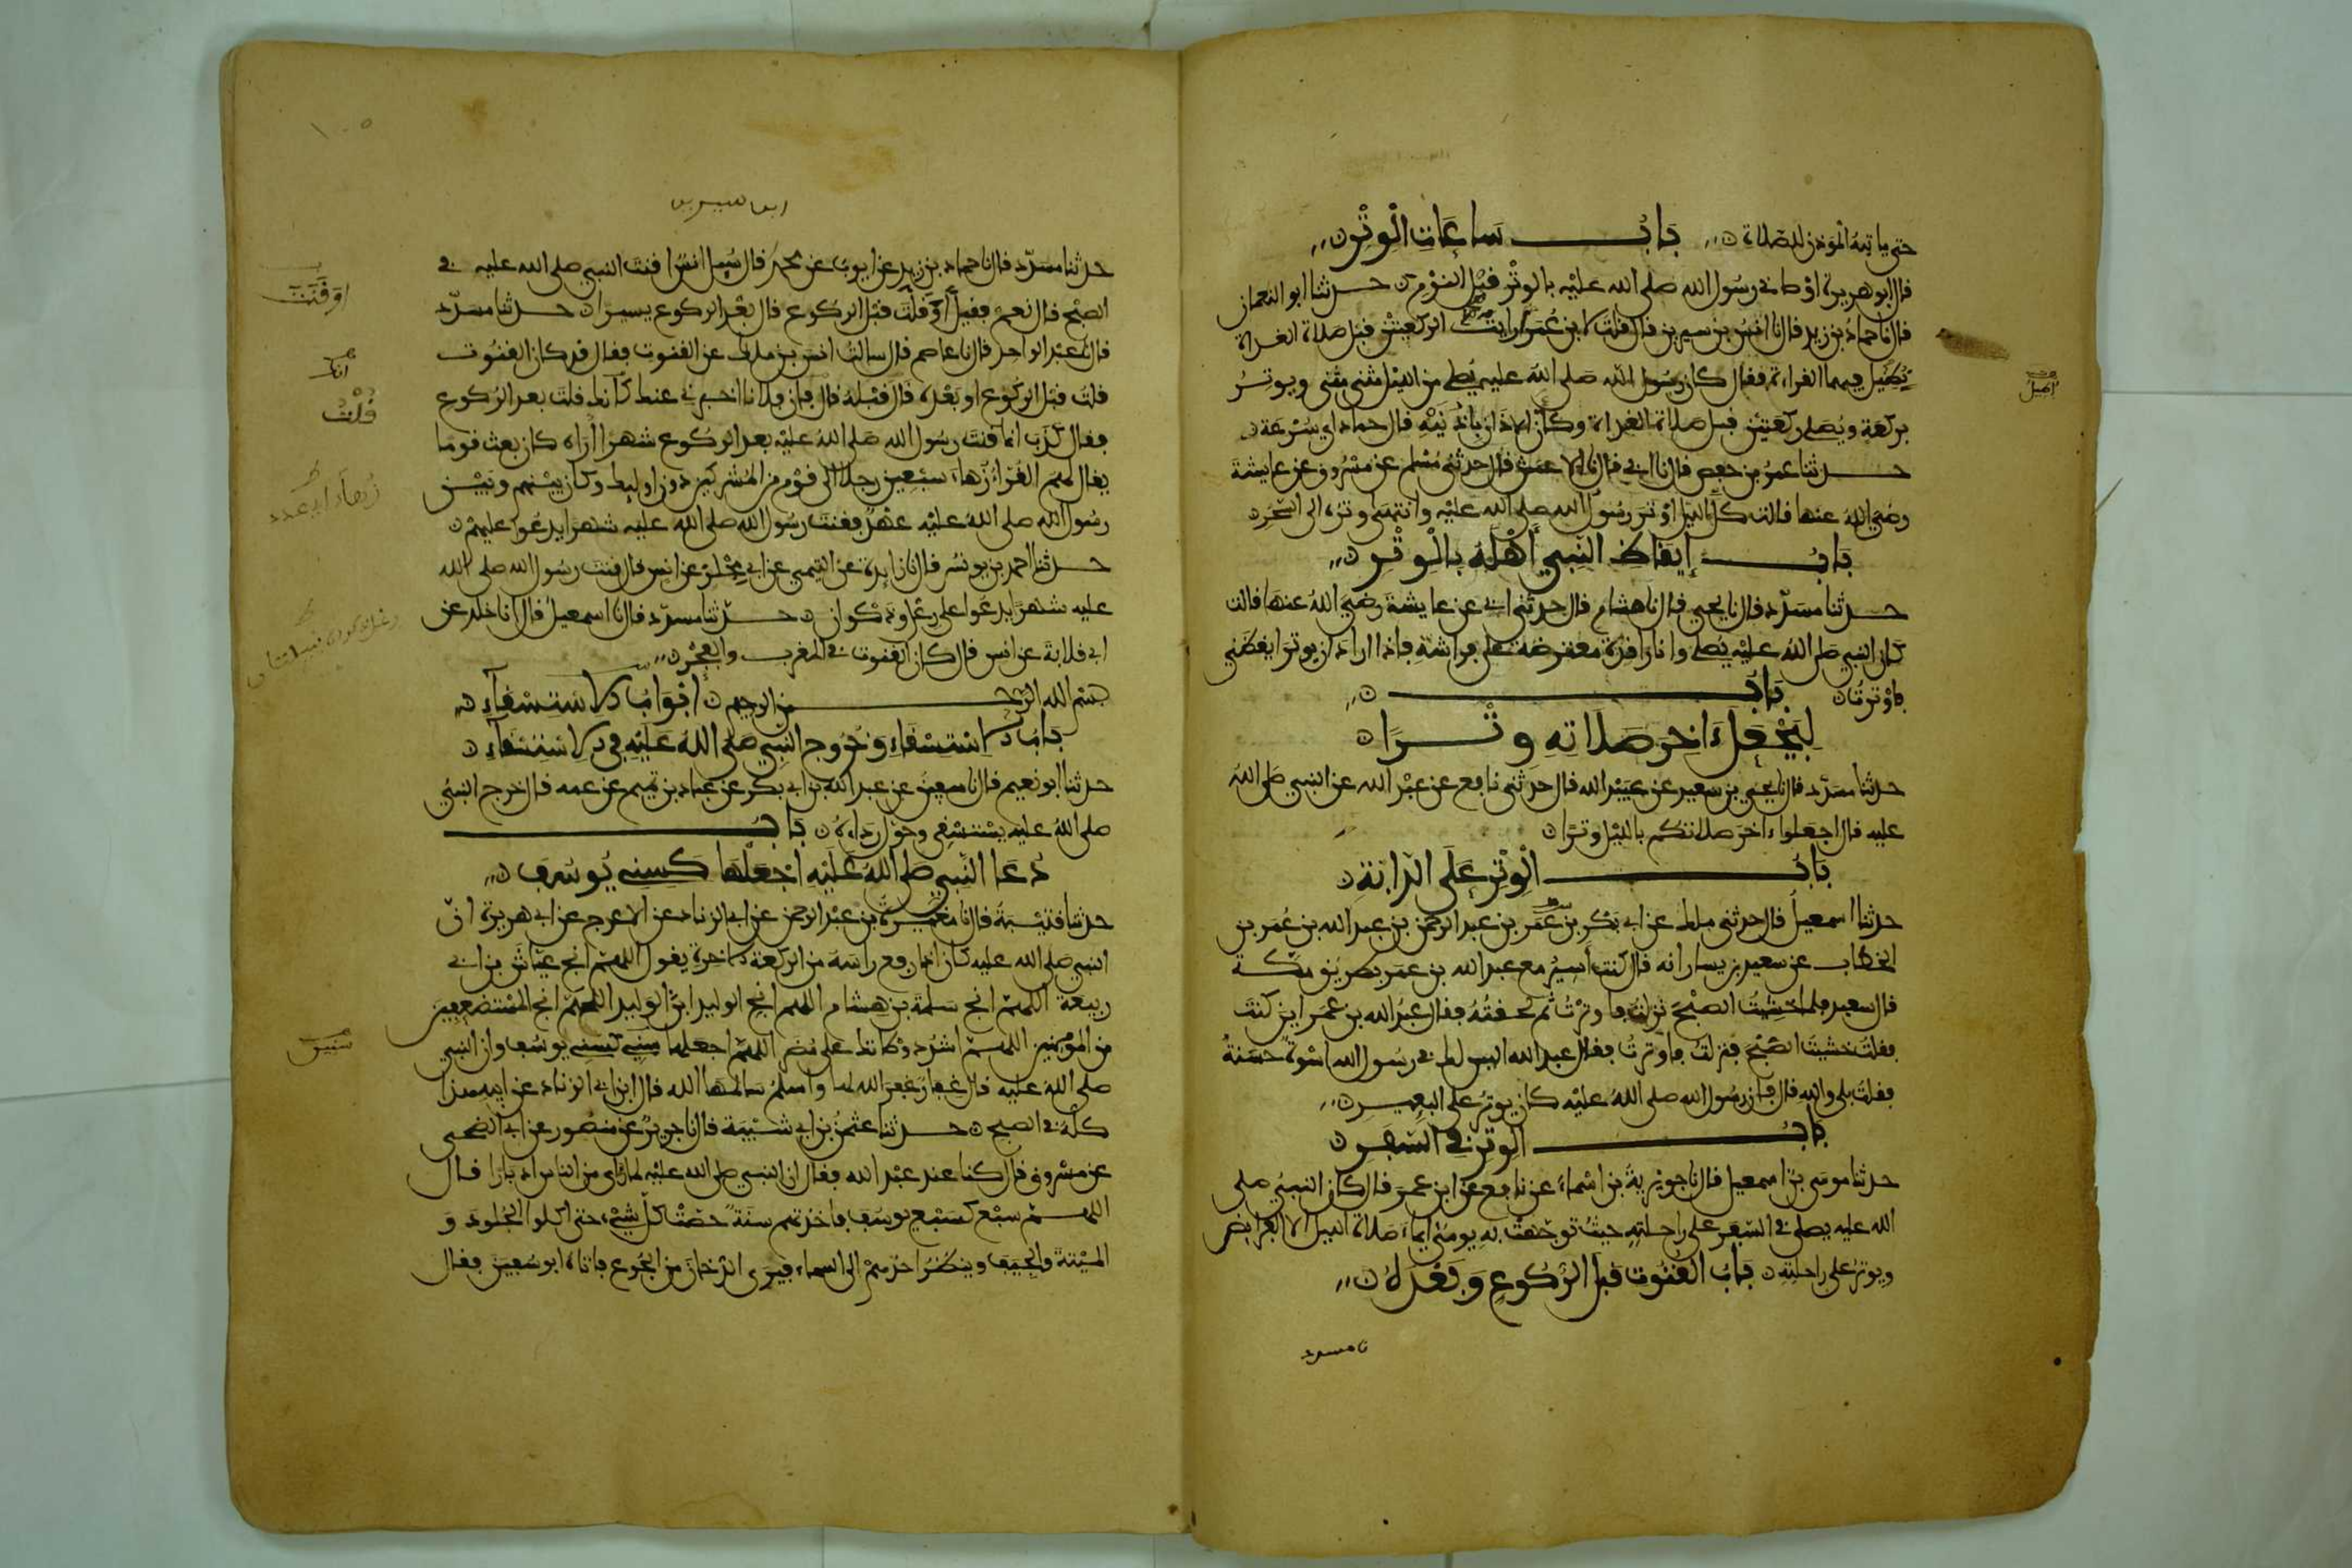 حتى ياتيه الموذن للصلاة باب ساعات الوتر
قال ابو هريرة اوصاني رسول الله صلى الله عليه بالوتر قبل النوم حدثنا ابو النعمان
قال نا حماد بن زيد قال نا انس بن سيرين قال قلت لابن عمر ارايت الركعتين قبل صلاة الغداة
نطيل فيهما القراءة فقال كان رسول الله صلى الله عليه يصلي من الليل مثنى مثنى ويوتر
بركعة ويصلي ركعتين قبل صلاة الغداة وكأن الاذان باذنيه قال حماد اي سرعة
حدثنا عمر بن حفص قال نا ابي قال نا الاعمش قال حدثني مسلم عن مسروق عن عايشة
رضي الله عنها قالت كل الليل اوتر رسول الله صلى الله عليه وانتهى وتره الى السحر
باب إيقاظ النبي أهله بالوتر
حدثنا مسدد قال نا يحيى قال نا هشام قال حدثني ابي عن عايشة رضي الله عنها قالت
كان النبي صلى الله عليه يصلي وانا راقدة معترضة على فراشه فاذا اراد ان يوتر ايقظني
فاوترت باب
ليجعل ءاخر صلاته وترا
حدثنا مسدد قال نا يحيى بن سعيد عن عبيد الله قال حدثني نافع عن عبد الله عن النبي صلى الله
عليه قال اجعلوا ءاخر صلاتكم بالليل وترا
باب الوتر على الدابة
حدثنا اسمعيل قال حدثني ملك عن ابي بكر بن عمر بن عبد الرحمن بن عبد الله بن عمر بن
الخطاب عن سعيد بن يسار انه قال كنت أسير مع عبد الله بن عمر بطريق مكة
قال سعيد فلما خشيت الصبح نزلت فاوترت ثم لحقته فقال عبد الله بن عمر اين كنت
فقلت خشيت الصبح فنزلت فاوترت فقال عبد الله اليس لك في رسول الله اسوة حسنة
فقلت بلى والله قال فان رسول الله صلى الله عليه كان يوتر على البعير
باب الوتر في السفر
حدثنا موسى بن اسمعيل قال نا جويرية بن اسماء عن نافع عن ابن عمر قال كان النبي صلى
الله عليه يصلي في السفر على راحلته حيث توجهت به يومئ ايماء صلاة الليل الا الفرايض
ويوتر على راحلته باب القنوت قبل الركوع وبعده
نا مسدد
اصيل
ابن سيرين
حدثنا مسدد قال نا حماد بن زيد عن ايوب عن محمد قال سيل انس اقنت النبي صلى الله عليه في
الصبح قال نعم فقيل أو قلت قبل الركوع قال بعد الركوع يسيرا حدثنا مسدد
قال نا عبد الواحد قال نا عاصم قال سالت انس بن ملك عن القنوت فقال قد كان القنوت
قلت قبل الركوع او بعده قال قبله قال فإن فلانا اخبرني عنك أنك قلت بعد الركوع
فقال كذب انما قنت رسول الله صلى الله عليه بعد الركوع شهرا أراه كان بعث قوما
يقال لهم القراء زهاء سبعين رجلا الى قوم من المشركين دون اوليك وكان بينهم وبين
رسول الله صلى الله عليه عهد فقنت رسول الله صلى الله عليه شهرا يدعوا عليهم
حدثنا احمد بن يونس قال نا زايدة عن التيمي عن ابي مجلز عن انس قال قنت رسول الله صلى الله
عليه شهرا يدعوا على رعل وذكوان حدثنا مسدد قال نا اسمعيل قال انا خلد عن
ابي قلابة عن انس قال كان القنوت في المغرب والفجر
بسم الله الرحمن الرحيم ابواب الاستسقاء
باب الاستسقاء وخروج النبي صلى الله عليه في الاستسقاء
حدثنا ابو نعيم قال نا سفين عن عبد الله بن ابي بكر عن عباد بن تميم عن عمه قال خرج النبي
صلى الله عليه يستسقي وحول رداءه باب
دعا النبي صلى الله عليه اجعلها كسني يوسف
حدثنا قتيبة قال نا مغيرة بن عبد الرحمن عن ابي الزناد عن الاعرج عن ابي هريرة ان
النبي صلى الله عليه كان اذا رفع راسه من الركعة الاخرة يقول اللهم انج عياش بن ابي
ربيعة اللهم انج سلمة بن هشام اللهم انج الوليد ابن الوليد اللهم انج المستضعفين
من المومنين اللهم اشدد وطاتك على مضر اللهم اجعلها سني كسني يوسف وان النبي
صلى الله عليه قال غفار غفر الله لها واسلم سالمها الله قال ابن ابي الزناد عن ابيه هذا
كله في الصبح حدثنا عثمن بن ابي شيبة قال نا جرير عن منصور عن ابي الضحى
عن مسروق قال كنا عند عبد الله فقال ان النبي صلى الله عليه لما راى من الناس ادبارا قال
اللهم سبع كسبع يوسف فاخذتهم سنة حصت كل شيء حتى اكلوا الجلود و
الميتة والجيف وينظر احدهم الى السماء فيرى الدخان من الجوع فاتاه ابو سفين فقال
١٠٥
اوقنت
انك
قلت
زهاء اي عدد
سنين